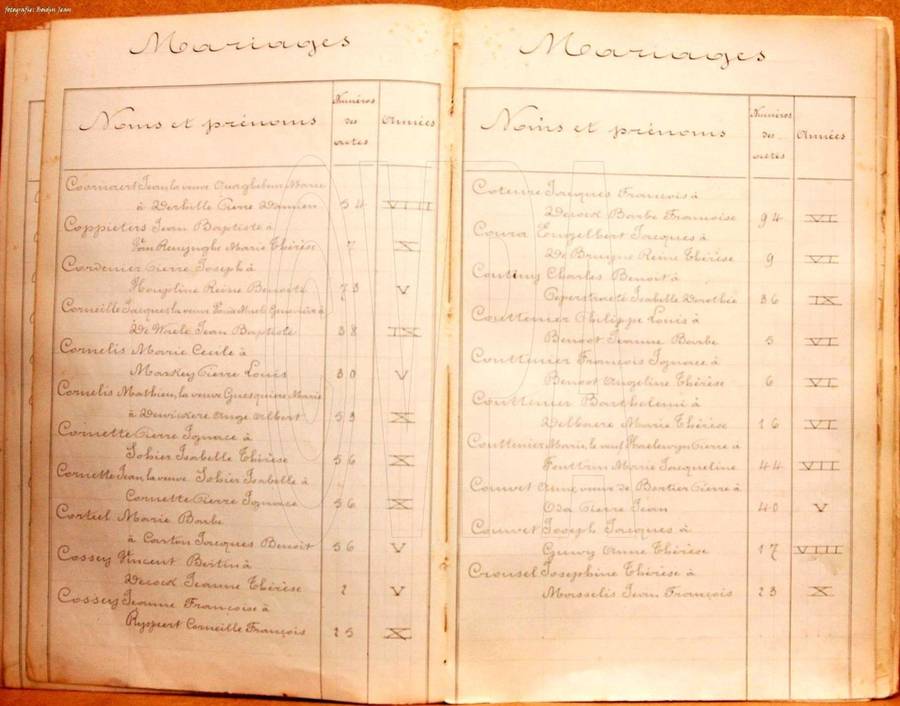 fotografie: Boidin Jean
Mariages
Noms et prénoms
Numéros des actes
Années
Coornaert Jean la veuve Quaghebeur Marie
à Derhille Pierre Damien 54 VIII
Coppieters Jean Baptiste à
Van Renynghe Marie Thérèse 7 X
Cordenier Pierre Joseph à
Houpline Reine Benoite 73 V
Corneille Jacques la veuve
De Waele Jean Baptiste 38 IX
Cornelis Marie Cecile à
Markey Pierre Louis 30 V
Cornelis Mathieu, la veuve Guesquiere Marie
à Dewickere Ange Albert 53 X
Cornette Pierre Ignace à
Sohier Isabelle Thérèse 56 X
Cornette Jean, la veuve Sohier Isabelle à
Cornette Pierre Ignace 56 X
Corteel Marie Barbe
à Carton Jacques Benoit 56 V
Cossey Vincent Bertin à
Decock Jeanne Thérèse 2 V
Cossey Jeanne Francoise à
Ryspeert Corneille François 25 X
Mariages
Noms et prénoms
Numéros des actes
Années
Coteure Jacques François à
Decock Barbe Francoise 94 VI
Coura Engelbert Jacques à
De Bruyne Reine Thérèse 9 VI
Couting Charles Benoit à
Peperstraete Isabelle Dorothée 36 IX
Couttenier Philippe Louis à
Benoot Jeanne Barbe 5 VI
Couttenier François Ignace à
Benoot Angeline Thérèse 6 VI
Couttenier Barthelemi à
Delbaere Marie Thérèse 16 VI
Couttenier Marie, le veuf Haelewyn Pierre à
Fouttrin Marie Jacqueline 44 VII
Couvet Anne veuve de Bertier Pierre à
Oda Pierre Jean 40 V
Couvet Joseph Jacques à
Guwy Anne Thérèse 17 VIII
Crousel Josephine Thérèse à
Masselis Jean François 23 X